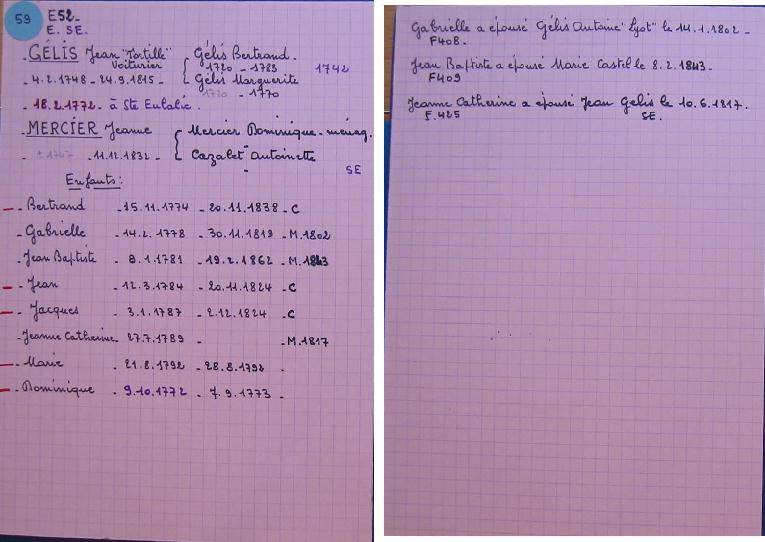 59
E52.
E. SE.
GÉLIS Jean "Tortillé" Gélis Bertrand.
Voiturier 1720 - 1783 1742
- 4.2.1748 - 24.9.1815 - Gélis Marguerite
1720 - 1770
- 18.2.1772 - à Ste Eulalie.
MERCIER Jeanne Mercier Dominique - ménag.
- ± 1747 - 11.12.1832 - Cazalet Antoinette
SE
Enfants:
- Bertrand - 15.11.1774 - 20.11.1838 - C
- Gabrielle - 14.2.1778 - 30.11.1819 - M.1802
- Jean Baptiste - 8.1.1781 - 19.2.1862 - M.1843
- Jean - 12.3.1784 - 20.11.1824 - C
- Jacques - 3.1.1787 - 2.12.1824 - C
- Jeanne Catherine - 27.7.1789 - - M.1817
- Marie - 21.8.1792 - 28.8.1792 -
- Dominique - 9.10.1772 - 7.9.1773 -
Gabrielle a épousé Gélis Antoine "Lyot" le 14.1.1802 -
F408.
Jean Baptiste a épousé Marie Castel le 8.2.1843 -
F409
Jeanne Catherine a épousé Jean Gélis le 10.6.1817.
F.425 SE.